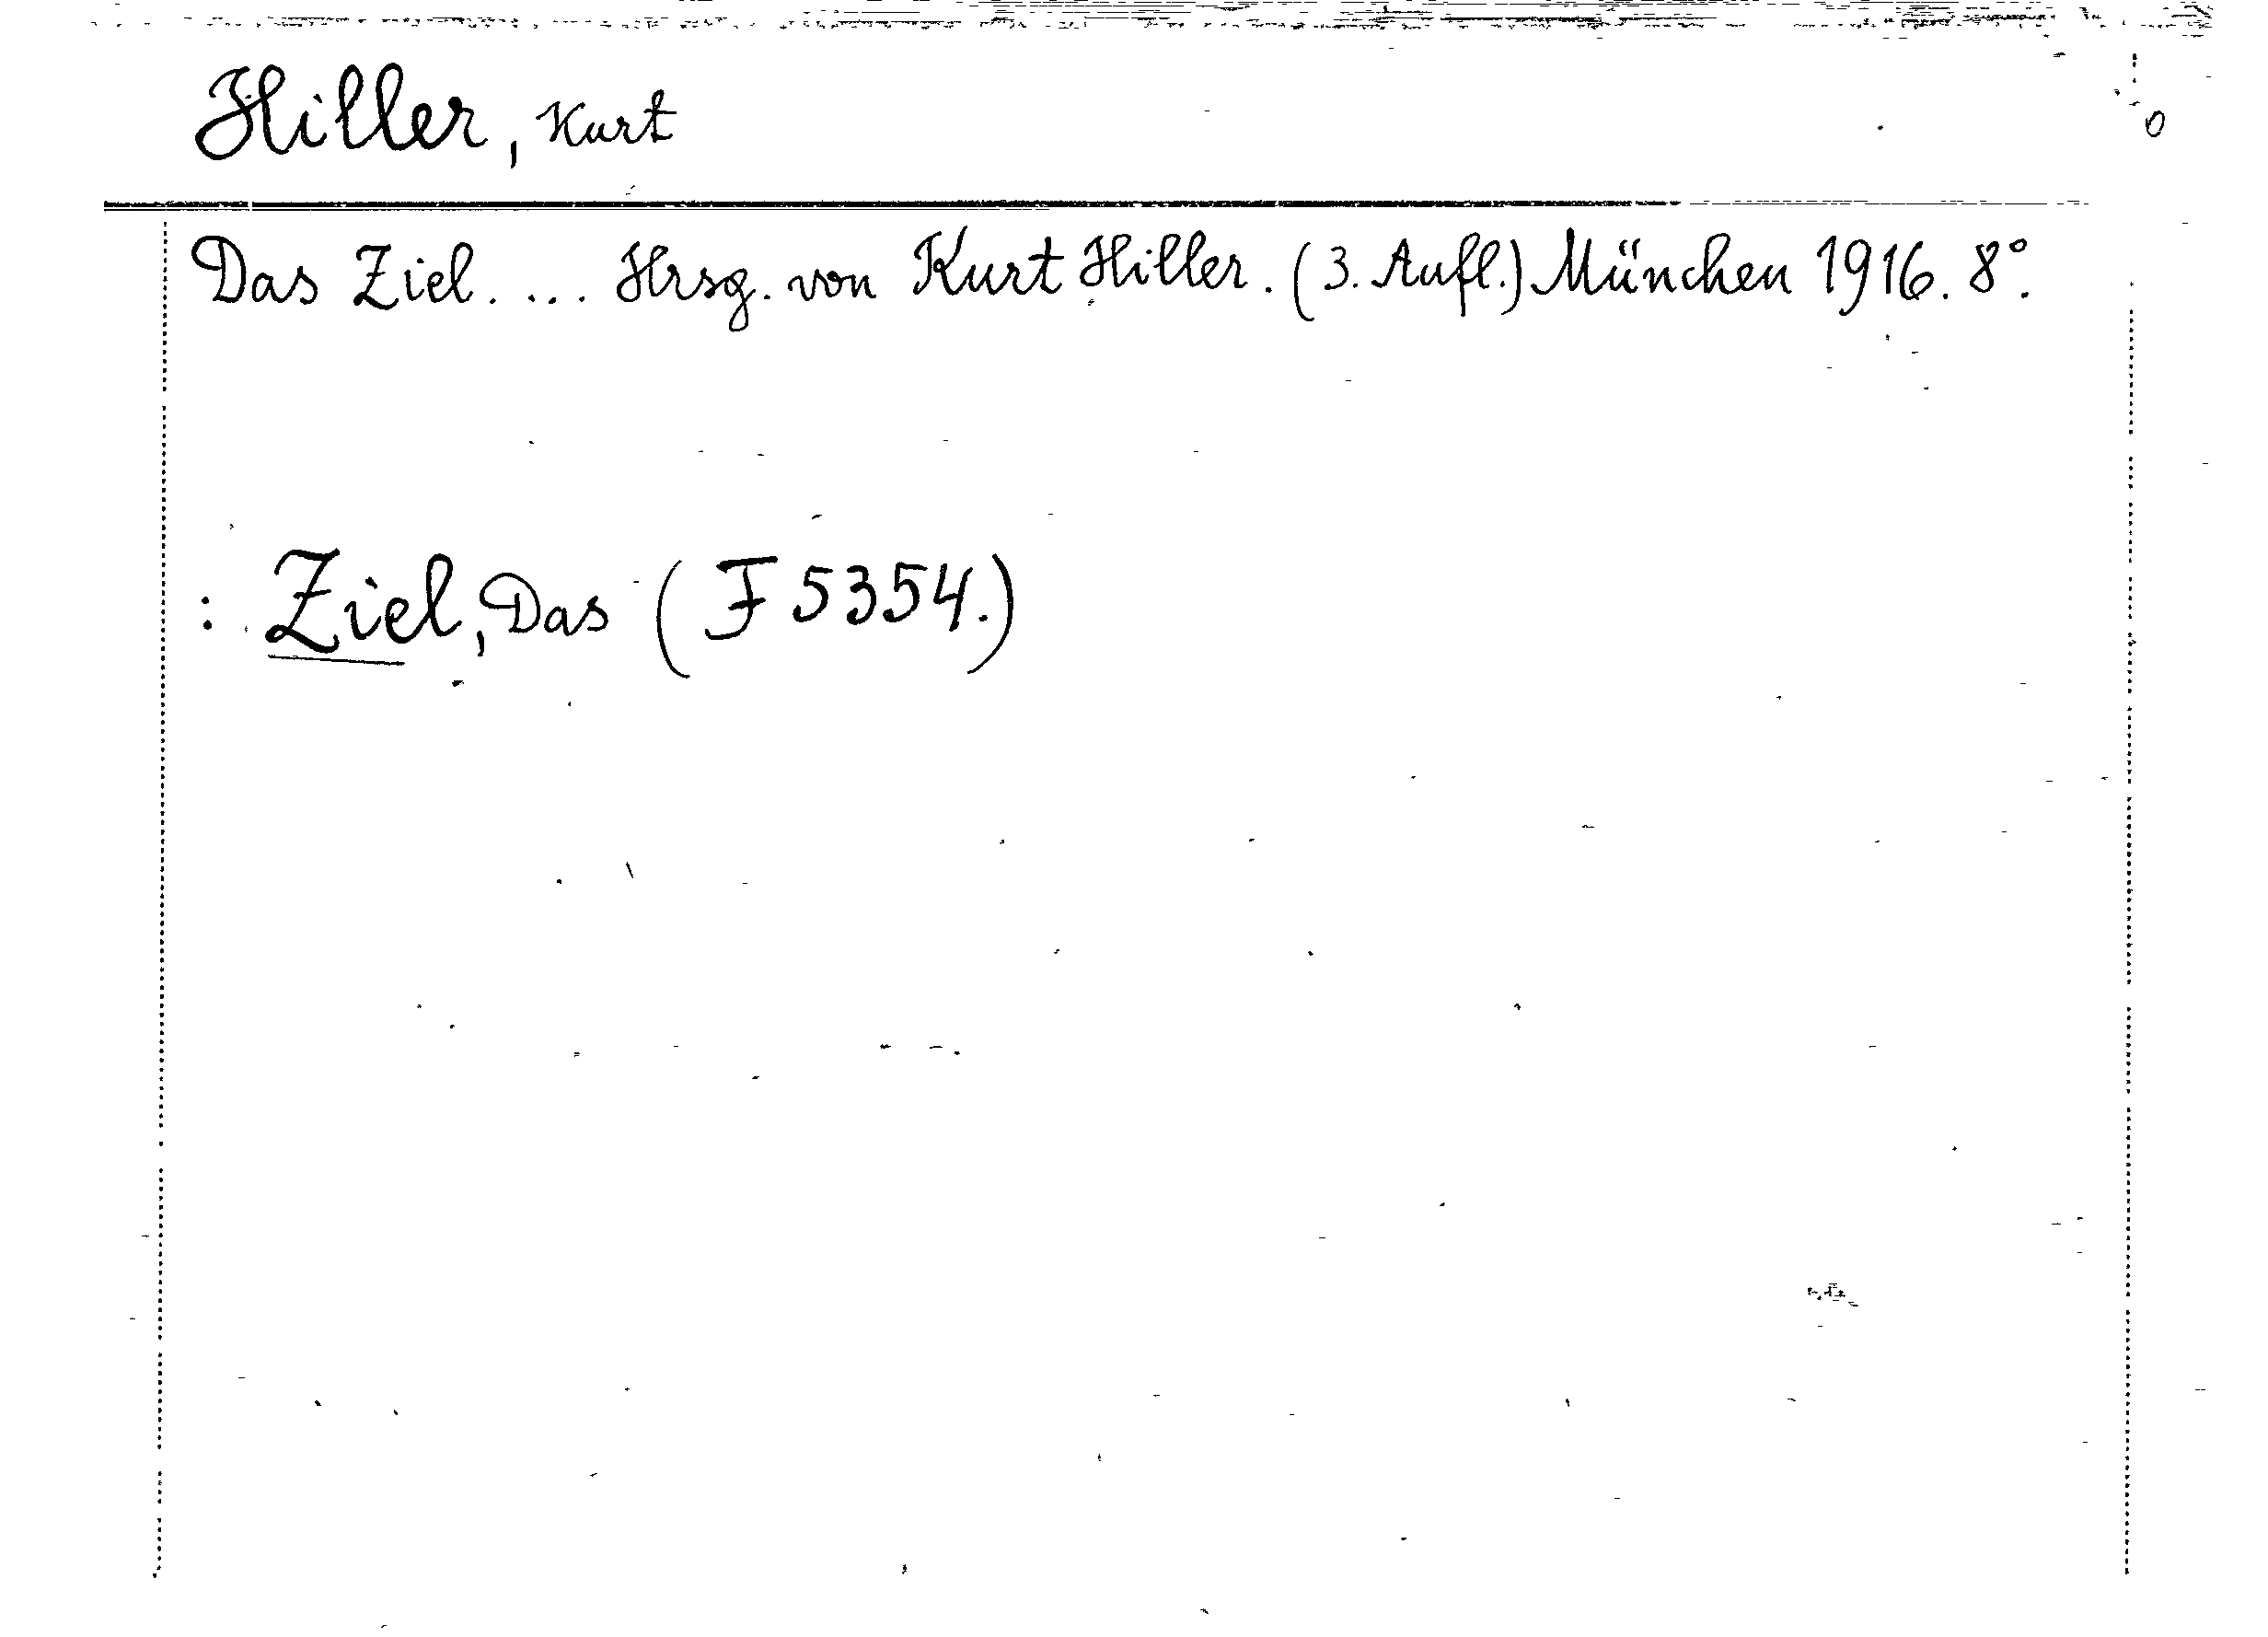 Hiller, Kurt
Das Ziel. ... Hrsg. von Kurt Hiller. (3. Aufl.) München 1916. 8°.
: Ziel, Das (F 5354.)